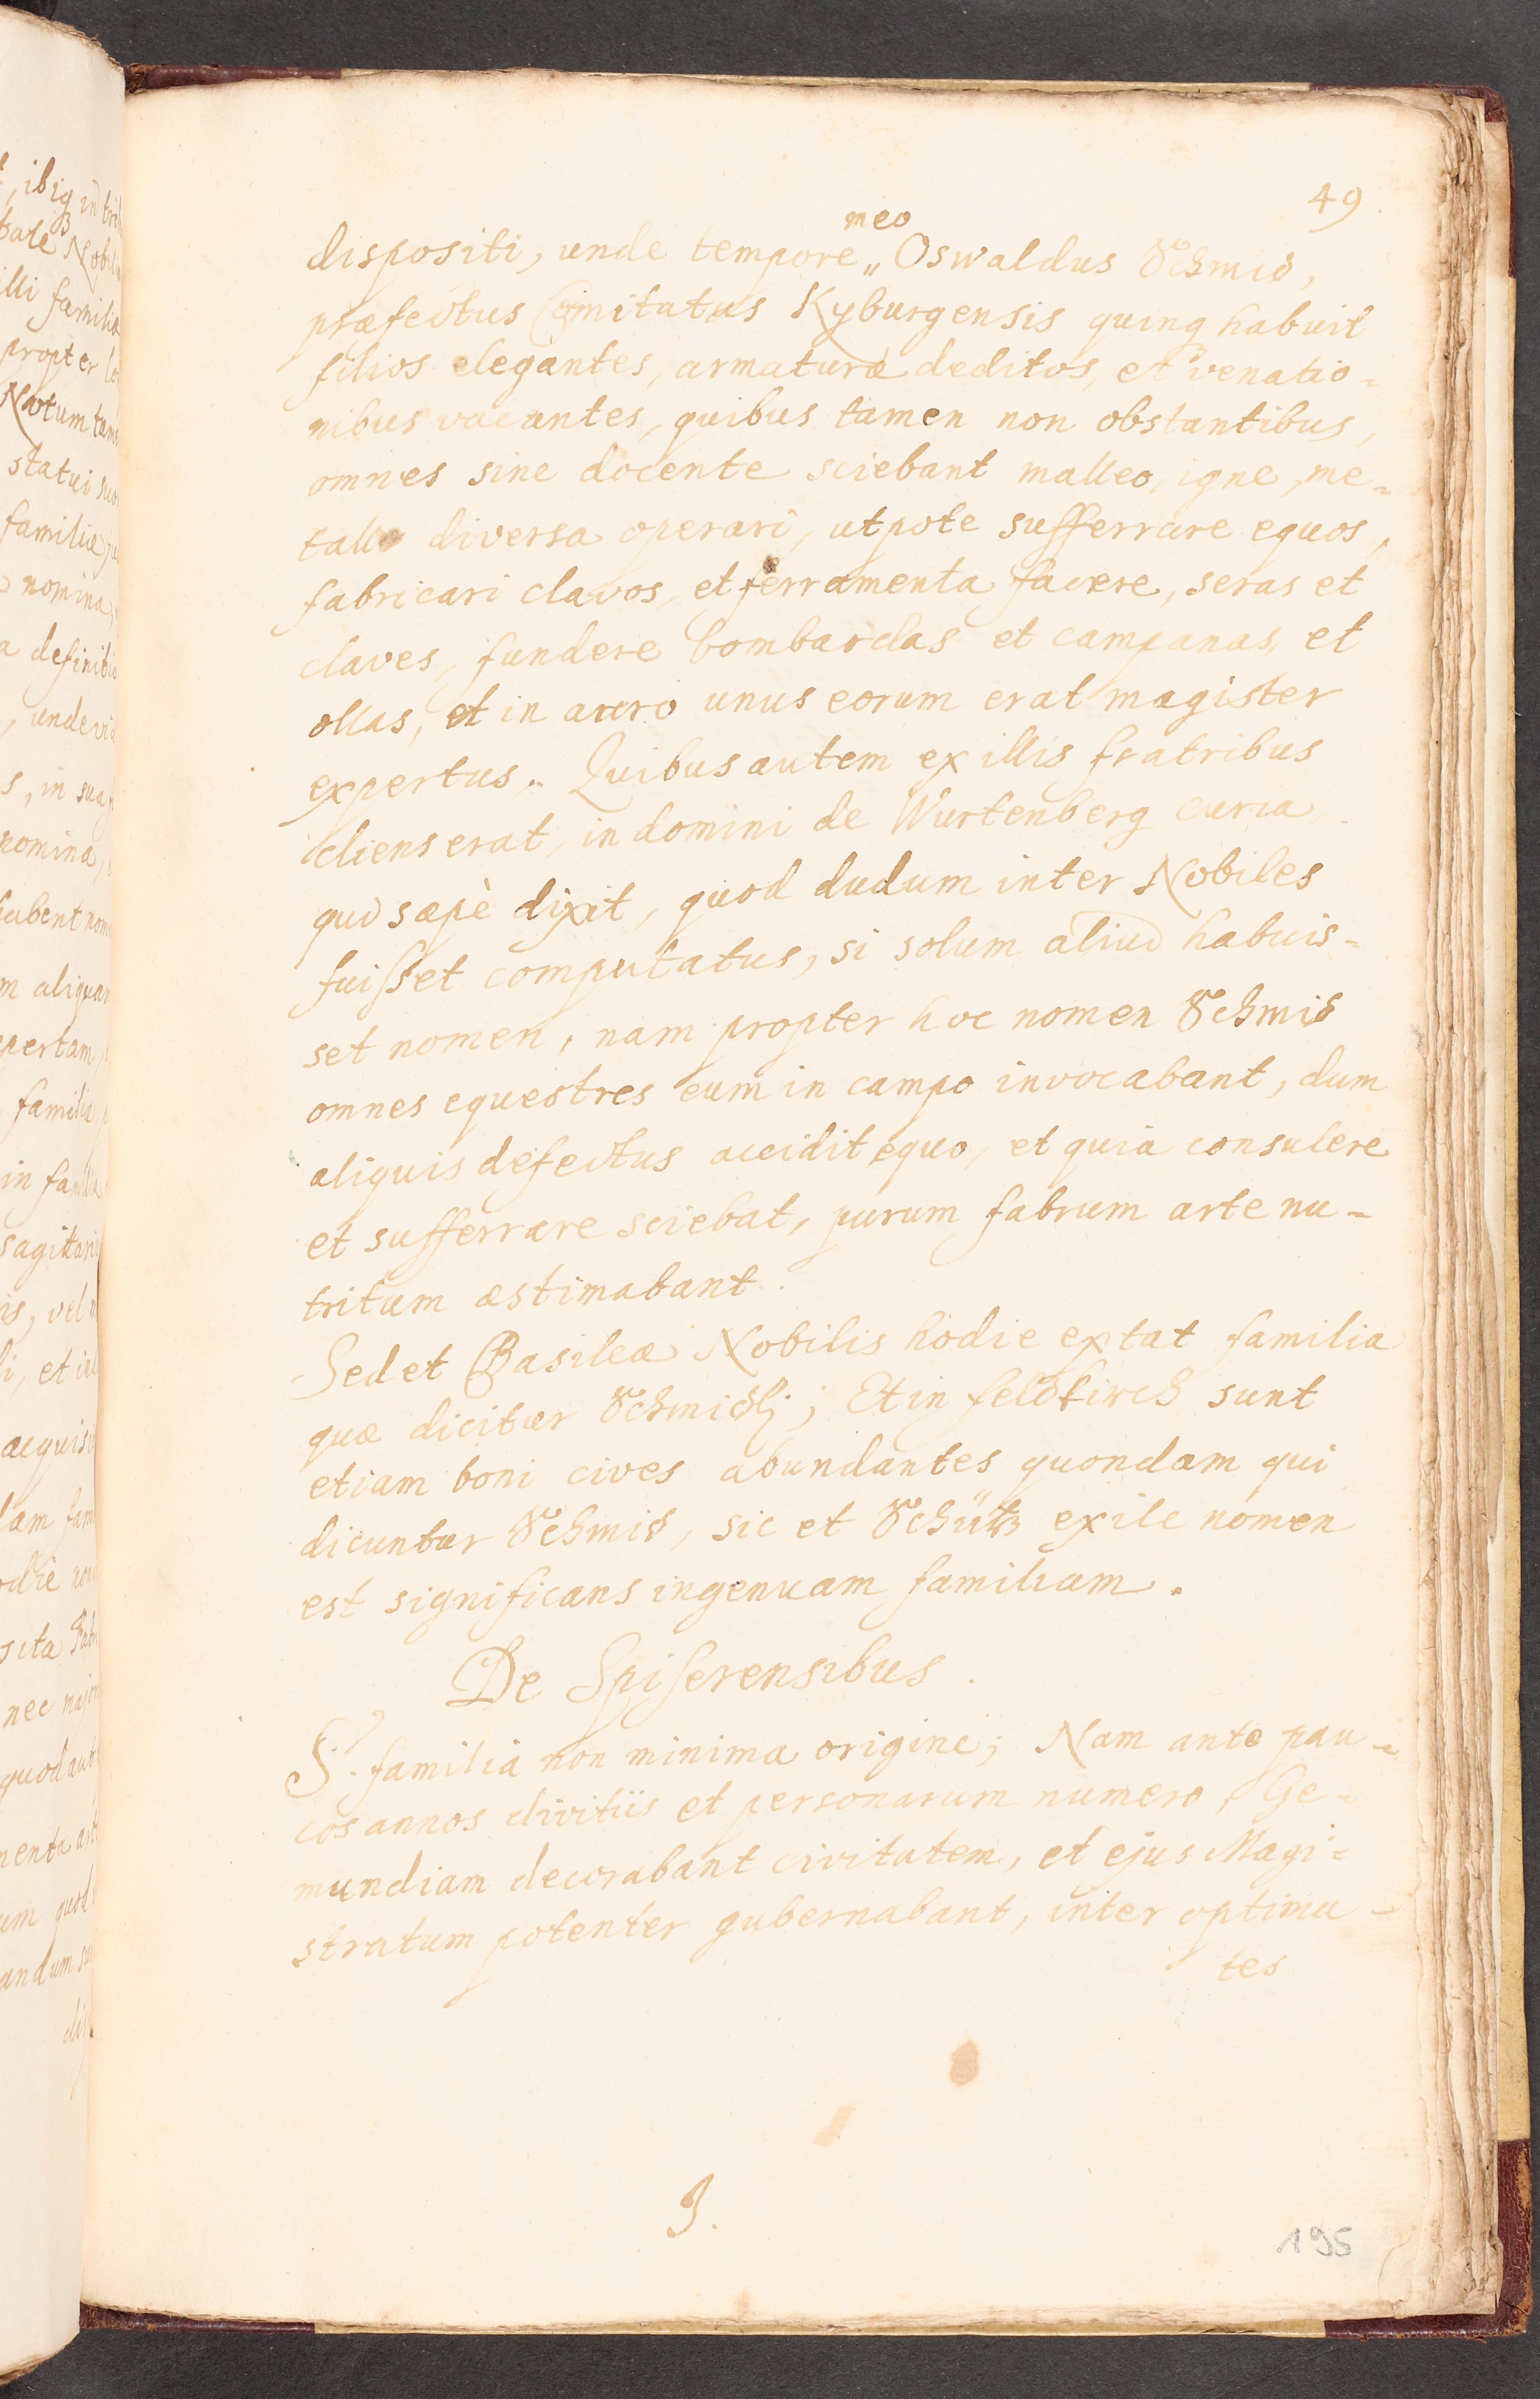 49
meo
dispositi, unde tempore „ Oswaldus Schmid,
præfectus Comitatus Kyburgensis quinq3 habuit
filios elegantes, armaturæ deditos, et venatio=
nibus vacantes, quibus tamen non obstantibus,
omnes sine docente sciebant malleo, igne, me=
tallo diversa operari, utpote sufferrare equos,
fabricari clavos, et ferramenta facere, seras et
claves, fundere bombardas et campanas, et
ollas, et in auro unus eorum erat magister
expertus. Quibus autem ex illis fratribus
cliens erat, in domini de Wurtenberg curia,
qui sæpè dixit, quod dudum inter Nobiles
fuisset computatus, si solum aliud habuis=
set nomen, nam propter hoc nomen Schmid
omnes equestres eum in campo invocabant, dum
aliquis defectus accidit equo, et quia consulere
et sufferrare sciebat, purum fabrum arte nu=
tritum æstimabant.
Sed et Basileæ Nobilis hodie extat familia
quæ dicitur Schmidlj; Et in feldkirch sunt
etiam boni cives abundantes quondam qui
dicuntur Schmid, sic et Schütz exile nomen
est significans ingenuam familiam.
De Spiserensibus.
S. familia non minima origine; Nam ante pau=
cos annos divitiis et personarum numero, Ge=
mundiam decorabant civitatem, et ejus Magi=
stratum potenter gubernabant, inter optima=
tes
J.
195
ibiq3 in
Nobili
illi familiæ
propter
Notum tam
statui suo
familiæ
nomina
definitio
, unde
s, in sua
nomina,
habent nom
m aliquam
pertam
familia
in familia
sagittari
is, vel
li, et
acquisi
fam
nec major
quod aut
menta
um quod
andum
dis